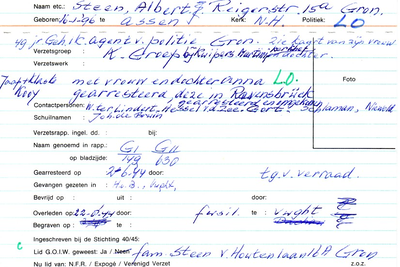 Naam etc.: Steen, Albert Reigerstr. 15a Gron.
Geboren: 10-1-96 te assen Kerk: N.H. Politiek: LO
49 jr Geh.k. agent v. politie Gron. zie kaart van zijn vrouw
Verzetsgroep : K. Groep bij Kuipers en dochter.
Verzetswerk :
met vrouw en dochter anna L.O.
gearresteerd, deze in Ravensbrück
Foto
Contactpersonen: W. ter Lindert, Hessel v.d. Zee. Gert. Schlaman,
Schuilnamen : Joh. de Bruin
Verzetsrapp. ingel. dd. : bij:
Naam genoemd in rapp.: GI GII
op bladzijde: 149 630
Gearresteerd op : 2-6-44 door : t.g.v. verraad.
Gevangen gezeten in : H.v.B., Vught,
Bevrijd op : uit : door:
Overleden op : 22-8-44 door : fusil. te : Vught
Begraven op : te :
Ingeschreven bij de Stichting 40/45:
Lid G.O.I.W. geweest Ja / Neen fam. Steen v. Houtenlaan Gron
Nu lid van: N.F.R. / Expogé / Verenigd Verzet z.o.z.